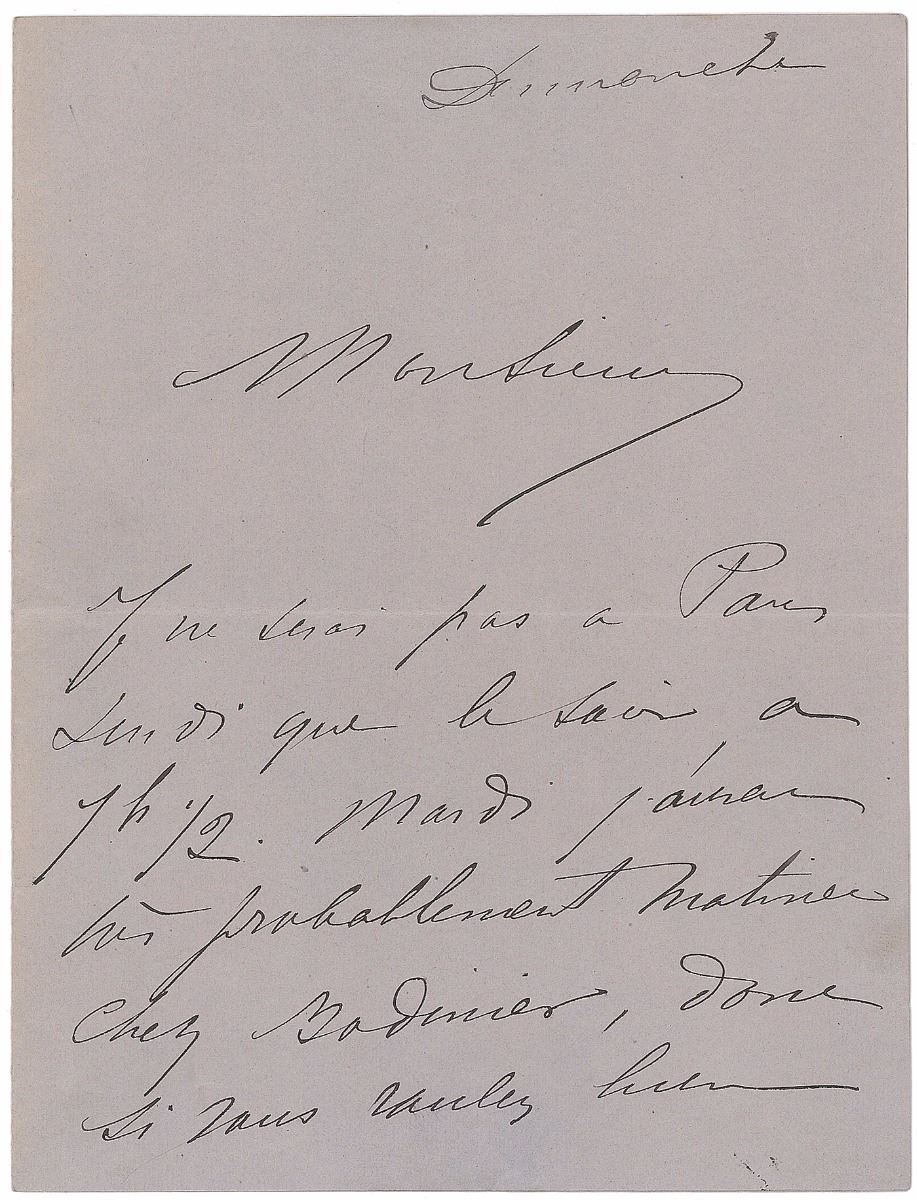 Dimanche
Monsieur
Je ne serai pas a Paris
Lundi que le soir, a
7h 1/2. Mardi j'aurai
très probablement Matinée
Chez Bodinier, donc
si vous voulez bien